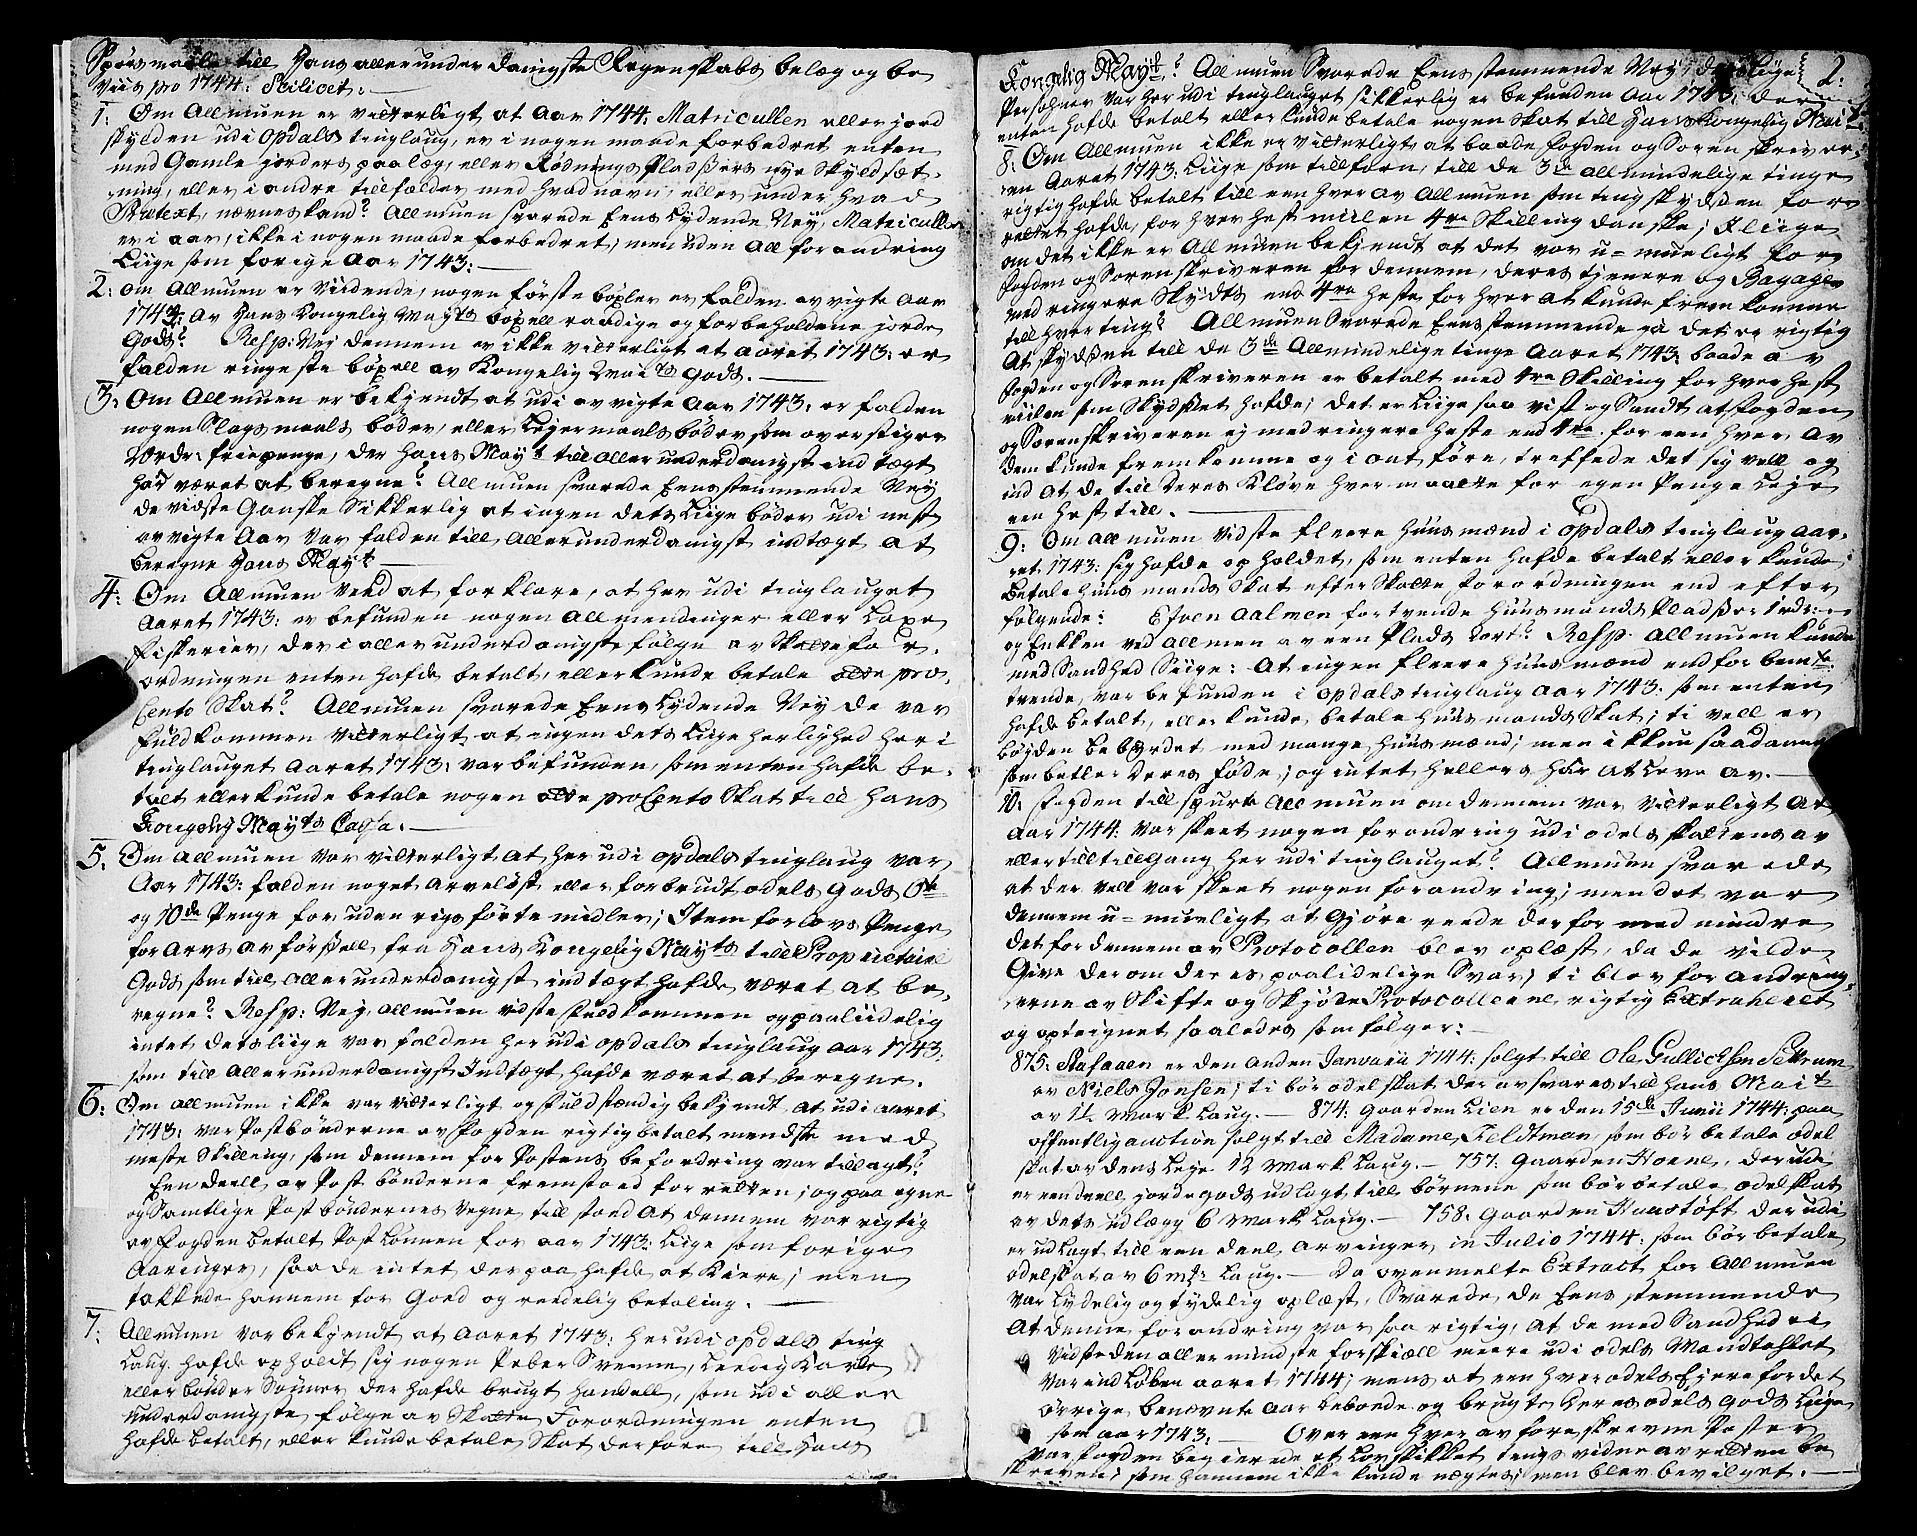 Spørsmaale till Hans aller under danigste Regenskabs belæg og be
viis pro 1744. Scilicet:
1: Om Allmuen er vitterligt at Aar 1744. Matricullen eller jord
skylden udi Opdals tinglaug, er i nogen maade forbedret enten
med Gamle Jorders paalæg, eller Rødnings Pladssers nye Skyldsæt-
ning, eller i andre tillfælder med hvad navn, eller under hvad
Prætext, nævnes kand? Allmuen svarede Eenslydende Nej, Matricullen
er i aar, ikke i nogen maade forbedret, men uden All forandring
Liige som forige Aar 1743:
2: Om Allmuen er viidende, nogen første bøxler er falden avvigte Aar
1743: Av Hans Kongelig Mayts bøxell raadige og forbeholdene jorde
Gods? Resp: Nej dennem er ikke vitterligt at aaret 1743: er
falden ringeste bøxell av Kongelig Maits Gods.
3: Om Allmuen er bekjendt at udi avvigte Aar 1743: er falden
nogen Slagsmaals bøder, eller Lejermaals bøder som overstiger
Ordr: friepenge, der Hans Mayt till Allerunderdanigst indtægt
har været at beregne? Allmuen svarede Eensstemmende Nej
de vidste Ganske Sikkerlig at ingen dets Liige bøder udi nest
avvigte Aar var falden till Allerunderdanigst indtægt at
beregne Hans Mayt
4: Om Allmuen veed at forklare, at her udi tinglauget
Aaret 1743: er befunden nogen Allmendinger eller Laxe
fiskerier, der i allerunderdanigst følge av Skattefor-
ordningen enten hafde betalt, eller kunde betale otte pro
Cento Skat? Allmuen svarede Eenslydende Nej de var
fuldkommen vitterligt at ingen dets Liige herlighed her i
tinglauget Aaret 1743: var befunden, som enten hafde be-
talt eller kunde betale nogen otte pro Cento Skat till Hans
Kongelig Mayts Cassa.
5: Om Allmuen var vitterligt at her udi Opdals tinglaug var
Aar 1743: falden noget Arveløst eller forbrudt odels Gods 6te
og 10de Penge for uden rigs førte midler; Item forlovs Penge
for Arvs avførssell fra Hans Kongelig Mayts till Proprietaire
Gods som till Allerunderdanigst indtægt hafde været at be-
regne? Resp: Nej, Allmuen vidste fuldkommen og paaliidelig
intet dets liige var falden her udi Opdals tinglaug Aar 1743:
som till Allerunderdanigst Indtægt hafde været at beregne.
6: Om Allmuen ikke var vitterligt og fuldstændig bekjendt at udi Aaret
1743: var Postbønderne av fogden rigtig betalt mendste med
meste Skilling, som dennem for Postens befordring var tillagt?
Een deell av Post bønderne fremstoed for retten; og paa egne
og Samtlige Postbøndernes vegne till stoed At dennem var rigtig
av fogden betalt Post Lønnen for aar 1743: Liige som forige
Aaringer, saa de intet derpaa hafde at Kiere; men
takkede hannem for Goed og reedelig betaling.
7: Allmuen var bekjendt at Aaret 1743: her udi Opdals ting
Laug hafde opholdt sig nogen Peber Svenne, Leedig Karle
eller bønder Sønner der hafde brugt handell, som udi aller
underdanigste følge av Skatte Forordningen enten
hafde betalt, eller kunde betale Skat derfore till Hans
2:
Kongelig Mayt? Allmuen Svarede Eens stemmende Nej, dets Liige
Persohner var her udi tinglauget sikkerlig er befunden Aar 1743: der
enten hafde betalt eller kunde betale nogen Skat till Hans Kongelig Mait
8: Om Allmuen ikke er vitterligt, at baade fogden og Soren skriver
en Aaret 1743: Liige som tillforn, till de 3de allmindelige tinge
rigtig hafde betalt till een hver av Allmuen som ting skydssen for
rettet hafde, for hver hest miilen 4re Skilling danske; I Liige
om det ikke er Allmuen bekjendt at det var u-mueligt for
fogden og Sorenskriveren for dennem, deres tjenere og Bagage
med ringere Skydts end 4re heste for hver at kunde frem komme
till hver ting? Allmuen Svarede Eensstemmende ja det er rigtig
At skydssen till de 3de Allmindelige tinge Aaret 1743: baade av
fogden og Sorenskriveren er betalt med 4re Skilling for hver hest
miilen som Skydsset hafde; det er Liige saa vist og Sandt at fogden
og Sorenskriveren ej med ringere heste end 4re for een hver av
dem kunde fremkomme og i ont føre, treffede det sig vell og
ind At de till deres Kløve hver maatte for egen Penge Leje
een hest till.
9: Om Allmuen vidste fleere huusmænd i Opdals tinglaug Aar-
ret 1743: sig hafde opholdet, som enten hafde betalt eller kunde
betale huusmands Skat efter Skatte forordningen end efter
følgende: Efven Aalmen for tvende huusmands Pladsser 1 rdr:
og Enken ved Allmen av een Plads 1 ort? Resp. Allmuen kunde
med Sandhed Siige: At ingen fleere huusmænd end for bemte
trende, var befunden i Opdals tinglaug Aar 1743: som enten
hafde betalt, eller kunde betale huusmands Skat; ti vell er
bøjden bebyrdet med mange huusmænd; men ikkun saadanne
som betler deres føde, og intet hellers har At Leve av.
10: fogden till spurte Allmuen om dennem var vitterligt At
Aar 1744: var skeet nogen forandring udi odels skattens av
eller till tillgang her udi tinglauget? Allmuen svarede
at der vell var skeet nogen forandring; men det var
dennem u-mueligt at gjøre reede derfor med mindre
det for dennem av Protocollen blev oplæst, da de vilde
Give derom deres paalidelige Svar; ti blev forandring-
erne av Skifte og Skjøde Protocollerne rigtig Extraheret
og opteignet saaledes som følger:
875: Stafaaen er den Anden Janvarii 1744: solgt till Ole Gullichsen Sættrum
av Niels Jonsen; ti bør odel skat der av svares till Hans Mait
av 1½ Mark Laug. — 874: Gaarden Lien er den 15de Junii 1744: paa
offentlig auction solgt till Madame Feldtman som bør betale odel
skat av dens Leje 12 Mark Laug. — 757: Gaarden Hoene, der udi
er een deell jordegods udlagt till børnene som bør betale odelskat
av dets udlægg 6 Mark Laug. — 758: Gaarden Haustøft der udi
er udlagt till een deel Arvinger, in Julio 1744: som bør betale
odelskat av 6 mk: Laug. — Da ovenmelte Extract for Allmuen
var Lydelig og tydelig oplæst, Svarede de Eensstemmende
At denne forandring var saa rigtig, At de med Sandhed ei
vidste den aller mindste forskiæll meere udi odels Mandtallet
var indløben aaret 1744; mens at een hver odels Ejere for det
øvrige benævnte aar beboede og brugte deres odels Gods Liige
som aar 1743: Over een hver av foreskrevne Poster
var fogden begierende et Lovskikket tings vidne av retten be
skreven; som hannem ikke kunde nægtes; men blev bevilget.